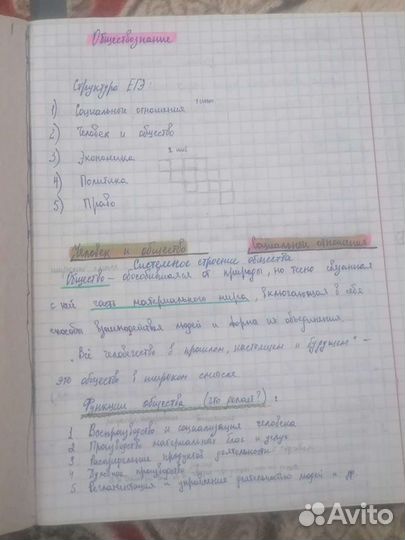 Обществознание
Структура ЕГЭ:
1) Социальные отношения
2) Человек и общество
3) Экономика
4) Политика
5) Право
Человек и общество
Социальные отношения
Системное строение общества
Общество - обособившаяся от природы, но тесно связанная
с ней часть материального мира, включающая в себя
способы взаимодействия людей и форма их объединения.
"Всё человечество в прошлом, настоящем и будущем" -
это общество в широком смысле
Функции общества (что делает?):
1 Воспроизводство и социализация человека
2 Производство материальных благ и услуг
3 Распределение продуктов деятельности
4 Духовное производство
5. Регламентация и управление деятельностью людей и др.
Avito